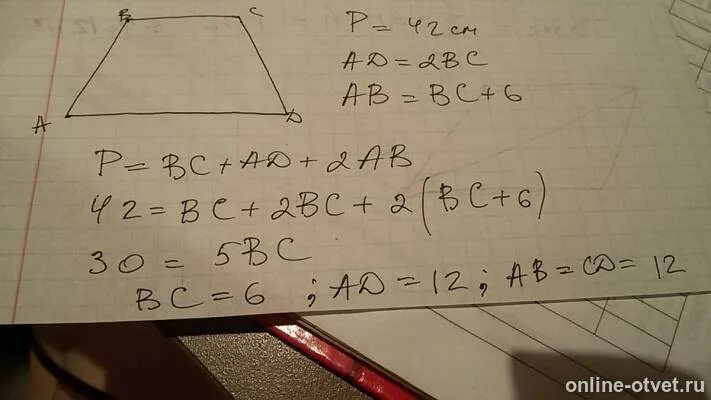 B C
A D
P = 42 см
AD = 2BC
AB = BC + 6
P = BC + AD + 2AB
42 = BC + 2BC + 2(BC + 6)
30 = 5BC
BC = 6 ; AD = 12 ; AB = CD = 12
online-otvet.ru